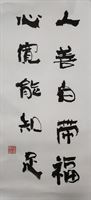 人善自带福
心宽能知足